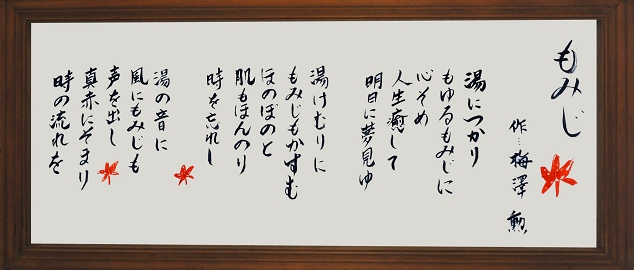 もみじ
作:梅澤 勲
湯につかり
もゆるもみじに
心そめ
人生癒して
明日に夢見ゆ
湯けむりに
もみじもかすむ
ほのぼのと
肌もほんのり
時を忘れし
湯の音に
風にもみじも
声を出し
真赤にそまり
時の流れを